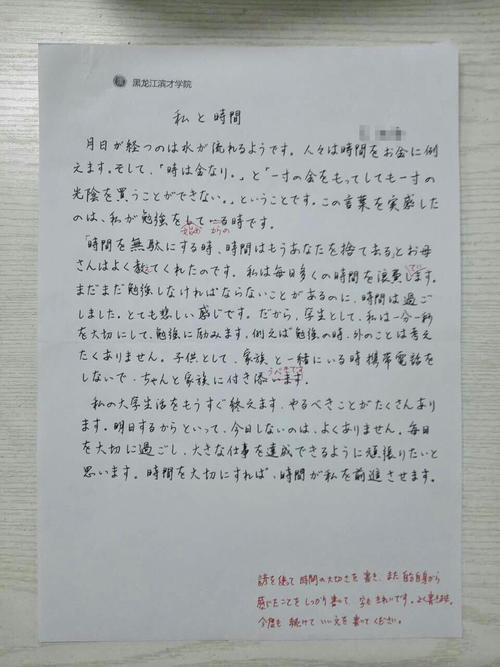 黑龙江滨才学院
私と時間
月日が経つのは水が流れるようです。人々は時間をお金に例
えます。そして、「時は金なり。」と「一寸の金をもってしても一寸の
光陰を買うことができない。」ということです。この言葉を実感した
のは、私が勉強をしている時です。
からの
「時間を無駄にする時、時間はもうあなたを捨て去る」とお母
さんはよく教えてくれたのです。私は毎日多くの時間を浪費します。
まだまだ勉強しなければならないことがあるのに、時間は過ご
しました。とても悲しい感じです。だから、学生として、私は一分一秒
を大切にして、勉強に励みます。例えば勉強の時、外のことは考え
たくありません。子供として、家族と一緒にいる時携帯電話を
しないで、ちゃんと家族に付き添います。
私の大学生活をもうすぐ終えます。やるべきことがたくさんあり
ます。明日するからといって、今日しないのは、よくありません。毎日
を大切に過ごし、大きな仕事を達成できるように頑張りたいと
思います。時間を大切にすれば、時間が私を前進させます。
諺を使って時間の大切さを書き、また自分自身から
感じたことをしっかり書いて、字もきれいです。よく書きました。
今度も続けていい文を書いてください。